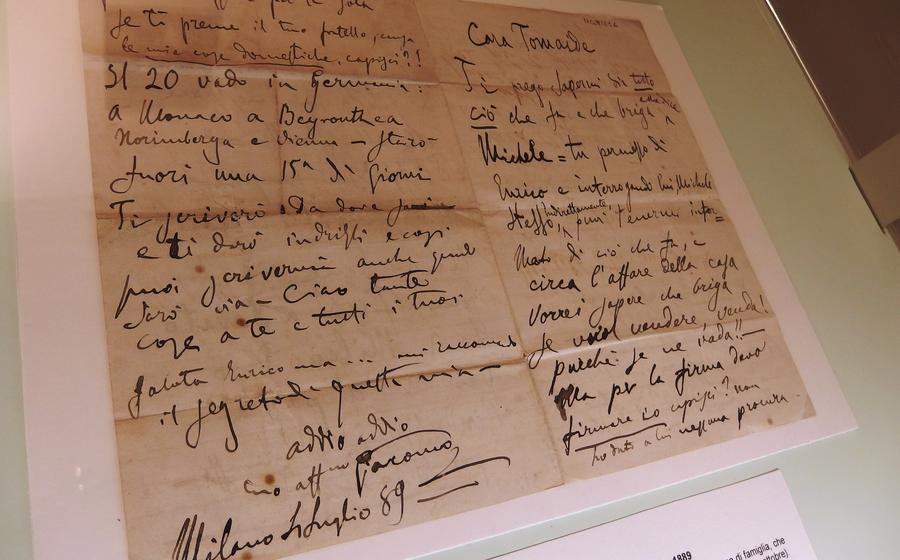 Cara Tomaide
Ti prego sapermi dir tutto
ciò che fa e che briga
Michele = tu permesso di
Enrico e interrogando lui Michele
stesso, indirettamente, puoi tenermi infor=
mato di ciò che fa, e
circa l'affare della casa
vorrei sapere che briga
se vuol vendere, venda!
purchè se ne vada!!
Ma per la firma devo
firmare io capisci? non
ho dato a lui nessuna procura.
per la gola
se ti preme il tuo fratello,
le mie cose domestiche, capisci?!
Il 20 vado in Germania:
a Monaco a Beyrouth e a
Norimberga e Vienna – Starò
fuori una 15ª di giorni
Ti scriverò da dove
e ti darò indirizzi e così
puoi scrivermi anche quando
sarò via – Ciao tante
cose a te e tutti i tuoi
Saluta Enrico ma ... mi raccomando
il segreto di questa mia –
addio addio
tuo affmo Giacomo
Milano Luglio 89
1889
di famiglia, che